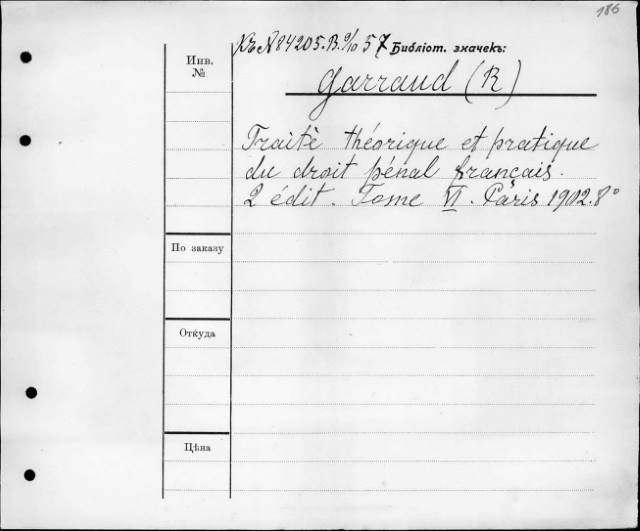 186
Къ № 84205. В. 9/10 57 Библіот. значекъ:
Инв. №
Garraud (R)
Traité théorique et pratique
du droit pénal français.
2 édit. Tome VI. Paris 1902. 8°
По заказу
Откуда
Цѣна